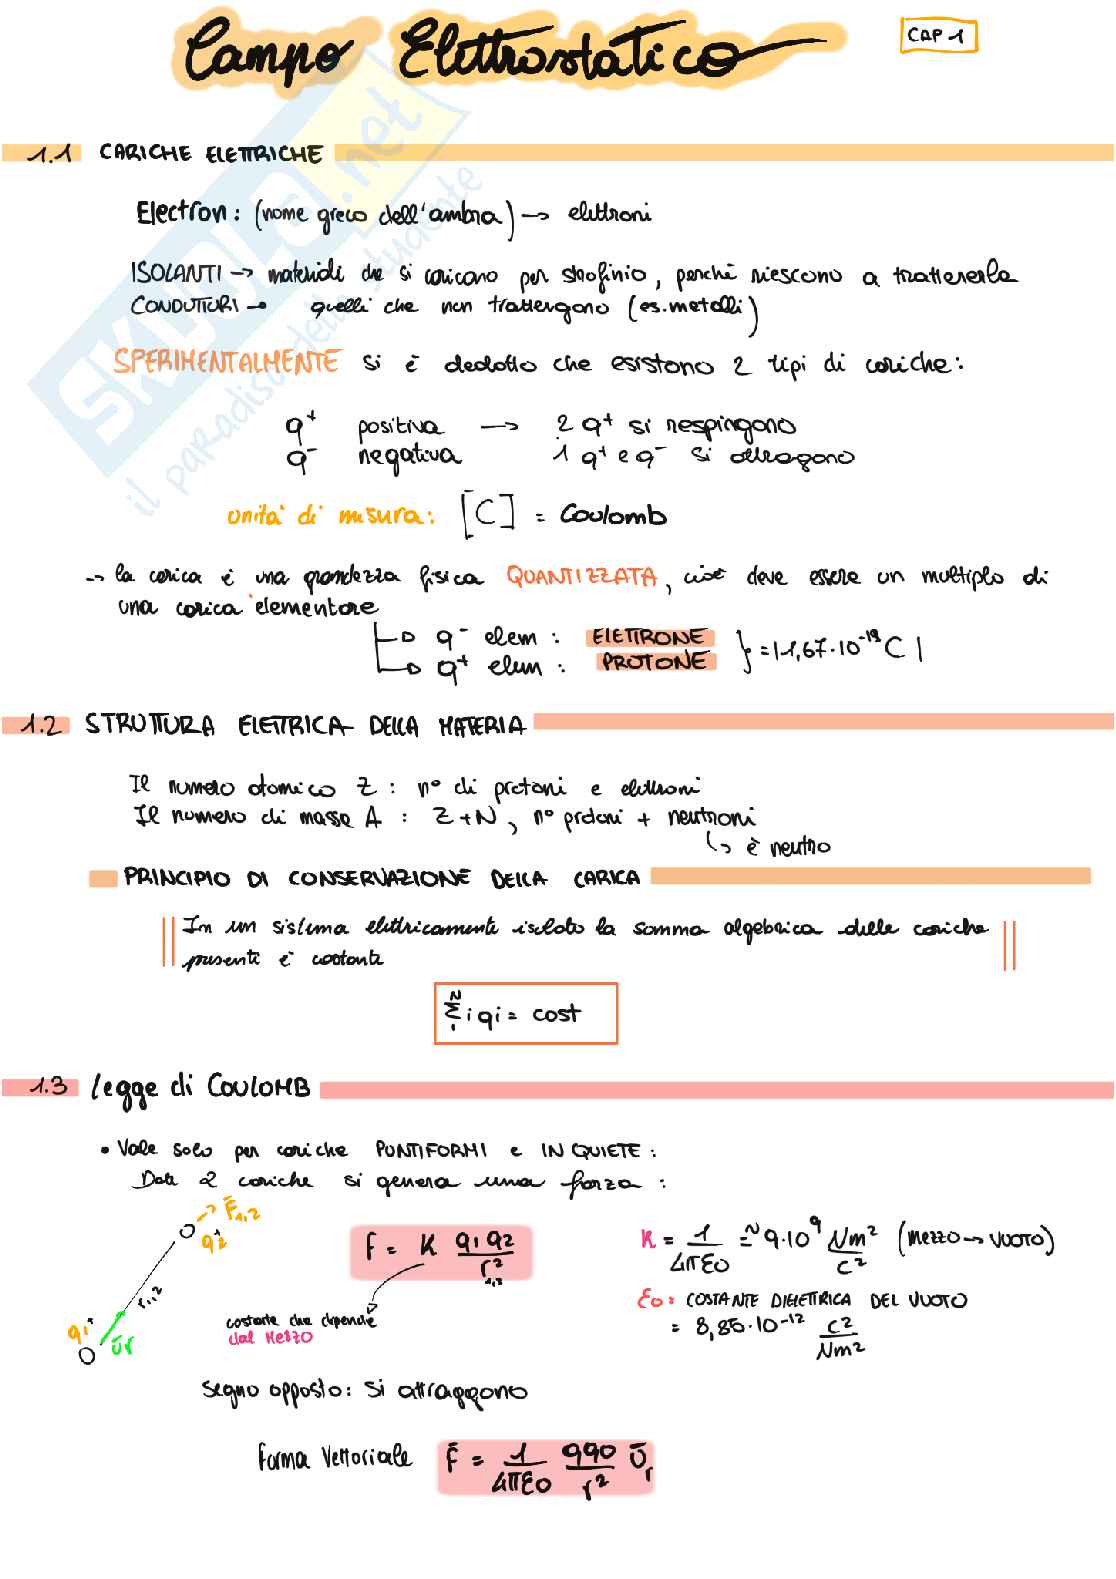 Campo Elettrostatico
CAP 1
1.1 CARICHE ELETTRICHE
Electron: (nome greco dell'ambra) → elettroni
ISOLANTI → materiali che si caricano per strofinio, perché riescono a trattenerla
CONDUTTORI → quelli che non trattengono (es. metalli)
SPERIMENTALMENTE si è dedotto che esistono 2 tipi di cariche:
q+ positiva → 2 q+ si respingono
q- negativa 1 q+ e q- si attraggono
unità di misura: [C] = Coulomb
→ la carica è una grandezza fisica QUANTIZZATA, cioè deve essere un multiplo di
una carica elementare
q- elem : ELETTRONE
q+ elem : PROTONE } = |1,67·10⁻¹⁹ C|
1.2 STRUTTURA ELETTRICA DELLA MATERIA
Il numero atomico Z : n° di protoni e elettroni
Il numero di massa A : Z+N, n° protoni + neutroni
↳ è neutro
PRINCIPIO DI CONSERVAZIONE DELLA CARICA
In un sistema elettricamente isolato la somma algebrica delle cariche
presenti è costante
Σi qi = cost
1.3 Legge di COULOMB
• Vale solo per cariche PUNTIFORMI e IN QUIETE :
Date 2 cariche si genera una forza :
F̄1,2
q2+
r1,2
q1+
ūr
F = K q1 q2 / r²1,2
costante che dipende
dal mezzo
K = 1/4πε0 ≃ 9·10⁹ Nm²/C² (mezzo → VUOTO)
ε0 = COSTANTE DIELETTRICA DEL VUOTO
= 8,85·10⁻¹² C²/Nm²
segno opposto: si attraggono
Forma Vettoriale F̄ = 1/4πε0 qq0/r² ūr
SKUOLA.net
il paradiso dello studente